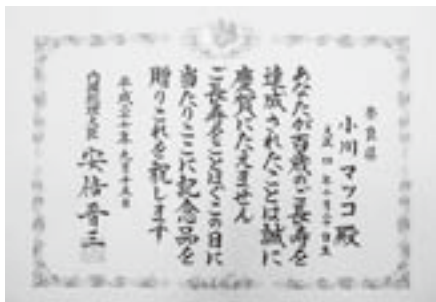 奈良県
小川マツコ殿
大正四年十月二十日生
あなたが百歳のご長寿を
達成されたことは誠に
慶賀にたえません
ご長寿をことほぐこの日に
当たりここに記念品を
贈りこれを祝します
平成二十年九月十五日
内閣総理大臣 安倍晋三